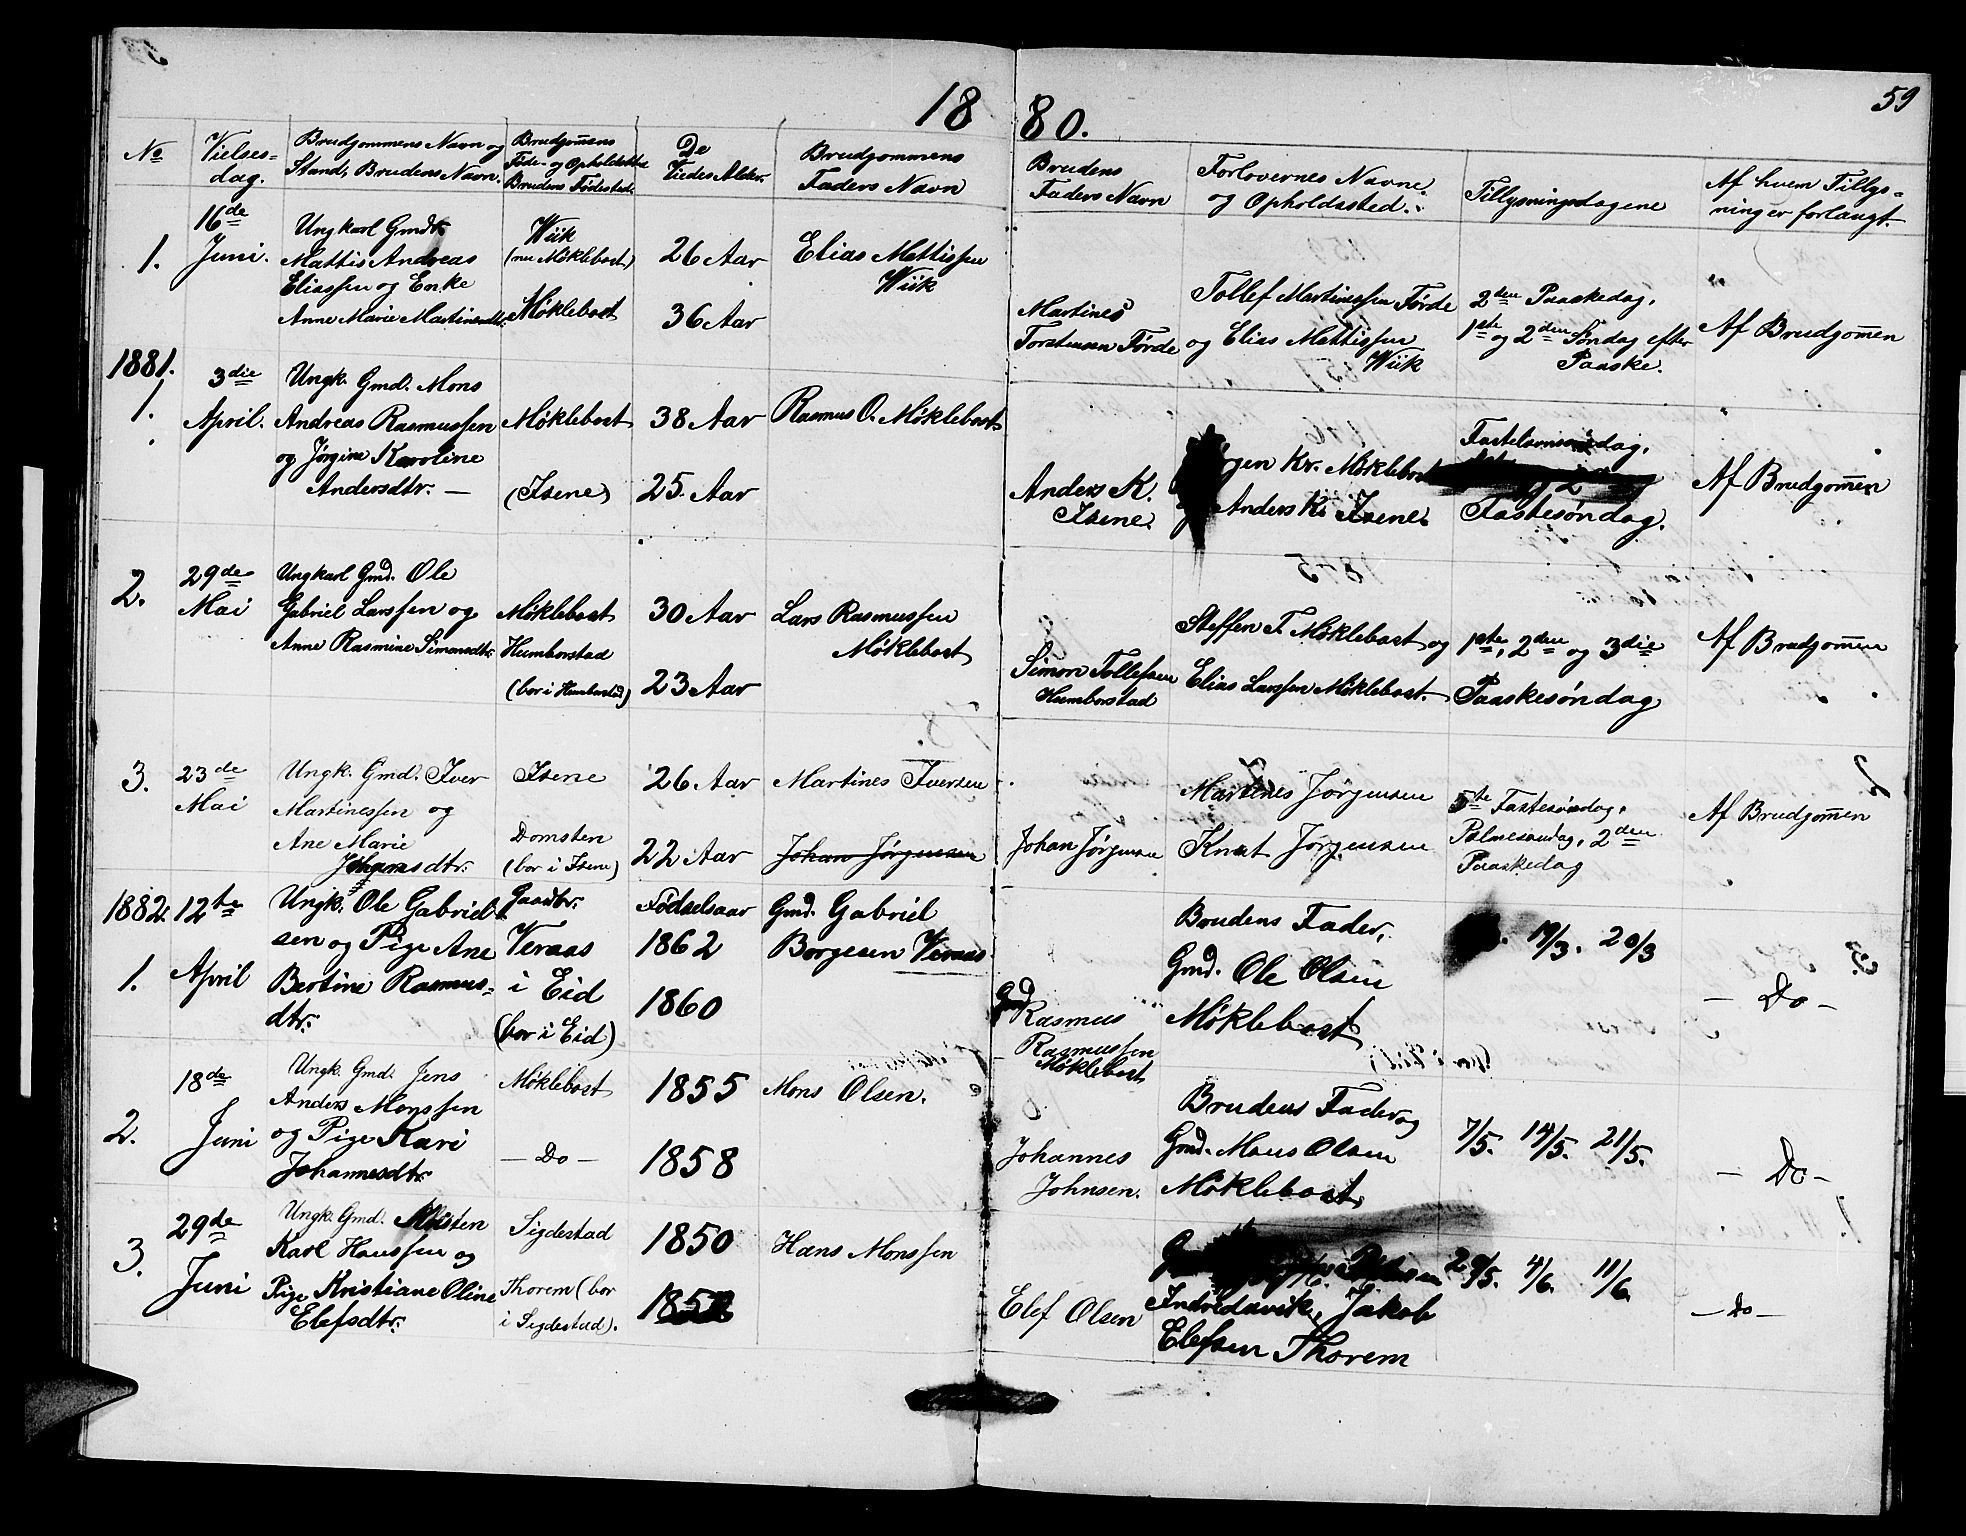 18 80.
59
No
Vielses-
dag.
Brudgommens Navn og
Stand, Brudens Navn.
Brudgom̅ens
Føde- og Opholdssted
Brudens Fødested.
De
Viedes Alder.
Brudgommens
Faders Navn
Brudens
Faders Navn
Forlovernes Navne
og Opholdssted.
Tillysningsdagene
Af hvem Tillys-
ning er forlangt.
1.
16de
Juni.
Ungkarl Gmdk
Mattis Andreas
Eliassen og Enke
Anne Marie Martinesdtr.
Wiik
(nu Møklebost)
Møklebost
26 Aar
36 Aar
Elias Mettissen
Wiik
Martines
Torstensen Førde
Tollef Martinessen Førde
og Elias Mettissen
Wiik
2den Paaskedag,
1ste og 2den Søndag efter
Paaske.
Af Brudgom̅en
1881.
1.
3die
April.
Ungk. Gmd. Mons
Andreas Rasmussen
og Jørgine Karoline
Andersdtr. —
Møklebost
(Isene)
38 Aar
25 Aar
Rasmus O. Møklebost
Anders K.
Isene.
Kr. Møklebost
Anders K. Isene.
Fastelavnssøndag,
2
Fastesøndag.
Af Brudgom̅en
2.
29de
Mai
Ungkarl Gmd. Ole
Gabriel Larssen og
Anne Rasmine Simonsdtr.
Møklebost
Humborstad
(bor i Humborstad)
30 Aar
23 Aar
Lars Rasmussen
Møklebost
Simon Tollefsen
Humborstad
Steffen F. Møklebost og
Elias Larssen Møklebost.
1ste, 2den og 3die
Paaskesøndag
Af Brudgom̅en
3.
23de
Mai
Ungk. Gmd. Iver
Martinessen og
Ane Marie
Johansdtr.
Isene
Domsten
(bor i Isene)
26 Aar
22 Aar
Martines Iversen
Johan Jørgensen
Johan Jørgensen
Martines Jørgensen
Knut Jørgensen
5te Fastesøndag,
Palmesøndag, 2den
Paaskedag
Af Brudgom̅en
1882.
1.
12te
April
Ungk. Ole Gabriel
sen og Pige Ane
Bertine Rasmus-
dtr.
Gaardbr.
Veraas
i Eid
(bor i Eid)
Fødselsaar
1862
1860
Gmd. Gabriel
Borgesen Veraas
Gmd
Rasmus
Rasmussen
Møklebost
Brudens Fader,
Gmd. Ole Olsen
Møklebost
19/3. 20/3
— Do —
2.
18de
Juni
Ungk. Gmd. Jens
Anders Monssen
og Pige Kari
Johannesdtr.
Møklebost
— Do —
1855
1858
Mons Olsen.
Johannes
Johnsen.
Brudens Fader og
Gmd. Mons Olsen
Møklebost
7/5. 14/5. 21/5.
— Do —
3.
29de
Juni
Ungk. Gmd.
Karl Hanssen og
Pige Kristiane Oline
Elefsdtr.
Sigdestad
Thorem (bor
i Sigdestad).
1850
Hans Monssen
Elef Olsen
Indredavik, Jakob
Elefsen Thorem
29/5. 4/6. 11/6.
— Do —